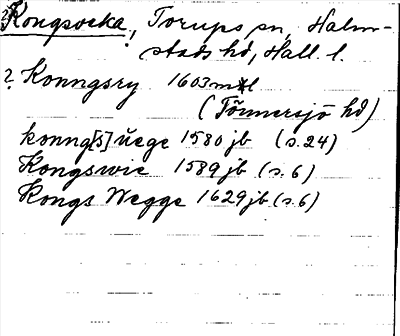 Kongsveka, Torups sn, Halm-
stads hd, Hall. l.
? Konngsry 1603 mtl
(Tönnersjö hd)
konng[s] uege 1580 jb (s. 24)
Kongswie 1589 jb (s. 6)
Kongs Wegge 1629 jb (s. 6)